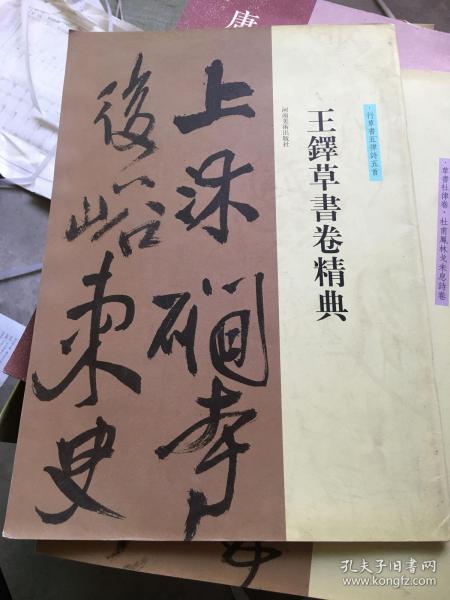 王鐸草書卷精典
·行草書五律詩五首
河南美術出版社
上
後峪東
·草書杜律卷·杜甫鳳林戈未息詩卷
唐
孔夫子旧书网
www.kongfz.com